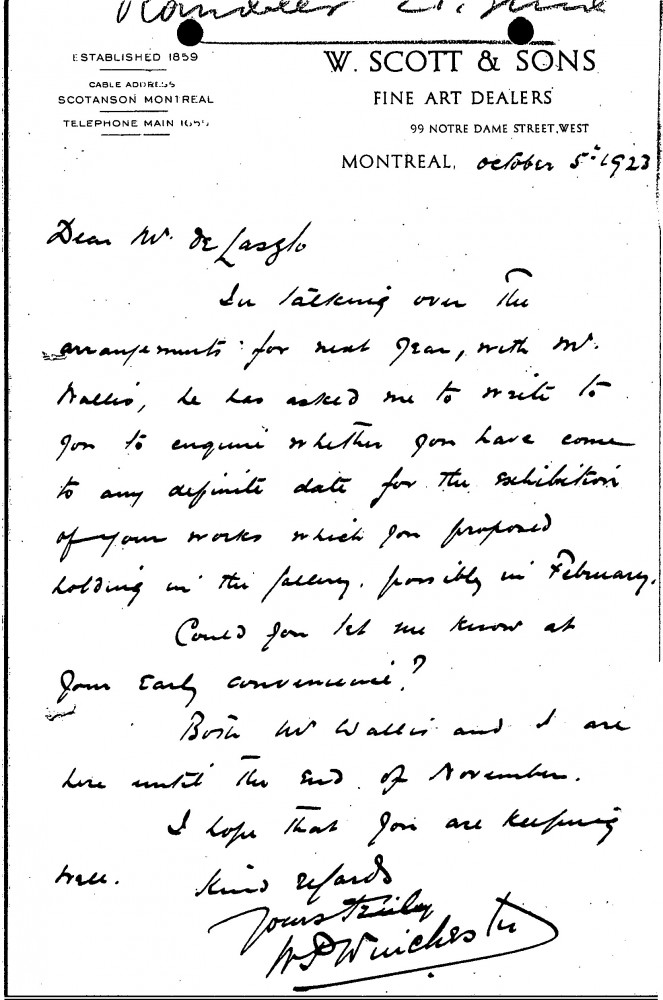 ESTABLISHED 1859
CABLE ADDRESS
SCOTANSON MONTREAL
TELEPHONE MAIN
W. SCOTT & SONS
FINE ART DEALERS
99 NOTRE DAME STREET, WEST
MONTREAL, October 5th 1923
Dear Mr. de Laszlo
In talking over the
arrangements for next year, with Mr.
Wallis, he has asked me to write to
you to enquire whether you have come
to any definite date for the exhibition
of your works which you proposed
holding in the gallery, possibly in February.
Could you let me know at
your early convenience?
Both Mr Wallis and I are
here until the end of November.
I hope that you are keeping
well. Kind regards
Yours truly
WP Winchester